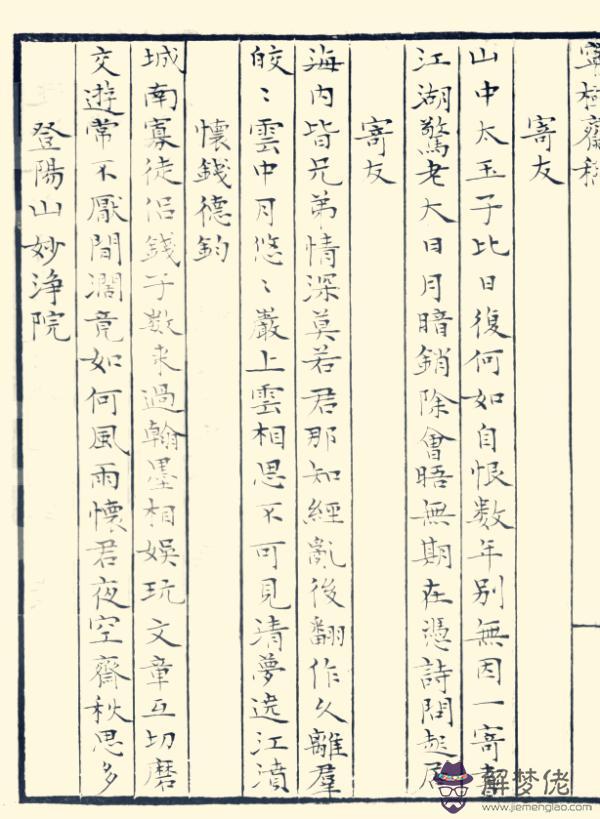 寧極齋稿
寄友
山中太玉子比日復何如自恨数年别無因一寄書
江湖驚老大日月暗銷除會晤無期在憑詩問起居
寄友
海内皆兄弟情深莫若君那知經亂後翻作久離羣
皎〻雲中月悠〻巖上雲相思不可見清夢遶江濆
懷錢德鈞
城南寡徒侣錢子数来過翰墨相娛玩文章互切磨
交遊常不厭間濶竟如何風雨懷君夜空齋秋思多
登陽山妙淨院
解梦佬
www.jiemenglao.com